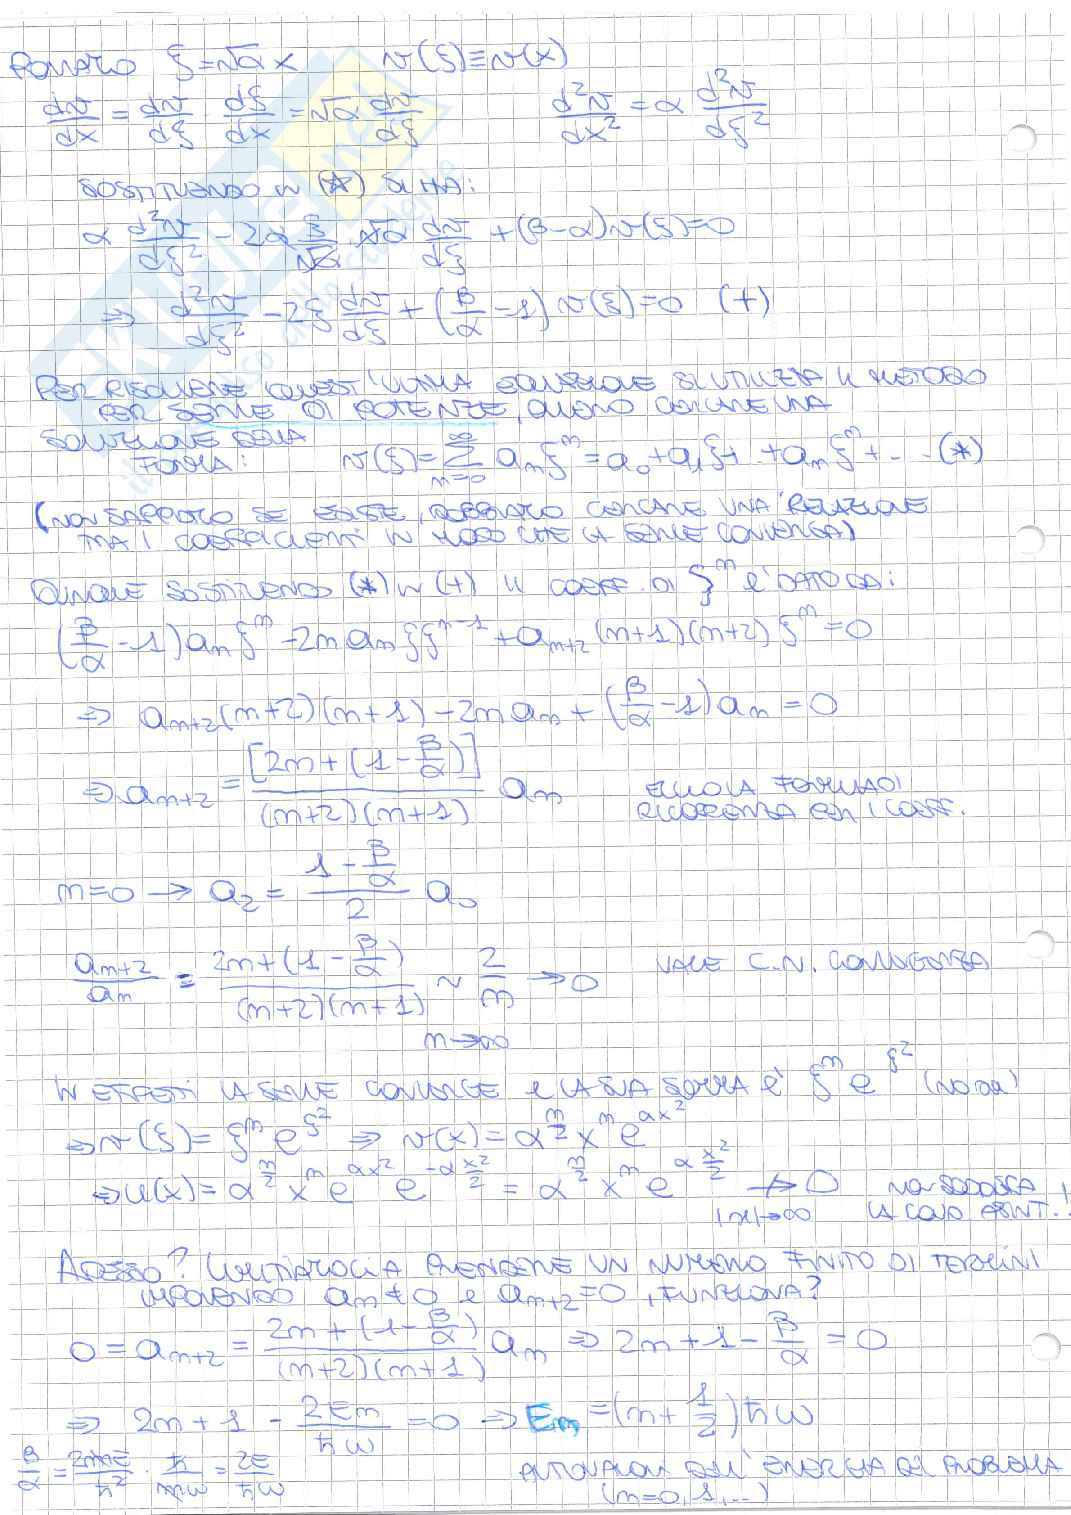 PONIAMO ξ=√α x    v(ξ)≡v(x)
dv/dx = dv/dξ · dξ/dx = √α dv/dξ    d²v/dx² = α d²v/dξ²
SOSTITUENDO IN (*) SI HA:
α d²v/dξ² - 2α ξ/√α · √α dv/dξ + (β-α)v(ξ)=0
⇒ d²v/dξ² - 2ξ dv/dξ + (β/α - 1) v(ξ)=0 (+)
PER RISOLVERE QUEST'ULTIMA EQUAZIONE SI UTILIZZA IL METODO
PER SERIE DI POTENZE, OVVERO CERCARE UNA
SOLUZIONE DELLA
FORMA: v(ξ)= ∑_{n=0}^{∞} a_n ξ^n = a_0 + a_1 ξ + .. + a_n ξ^n + ... (*)
(NON SAPPIAMO SE ESISTE, DOBBIAMO CERCARE UNA RELAZIONE
TRA I COEFFICIENTI IN MODO CHE LA SERIE CONVERGA)
DUNQUE SOSTITUENDO (*) IN (+) IL COEFF. DI ξ^n E' DATO DA:
(β/α - 1) a_n ξ^n - 2n a_n ξ ξ^{n-1} + a_{n+2} (n+1)(n+2) ξ^n = 0
⇒ a_{n+2}(n+2)(n+1) - 2n a_n + (β/α - 1) a_n = 0
⇒ a_{n+2} = [2n + (1 - β/α)] / (n+2)(n+1) a_n    ECCO LA FORMULA DI
RICORRENZA PER I COEFF.
n=0 → a_2 = (1 - β/α)/2 a_0
a_{n+2}/a_n = 2n + (1 - β/α) / (n+2)(n+1) ~ 2/n → 0    VALE C.N. CONVERGENZA
n→∞
IN EFFETTI LA SERIE CONVERGE E LA SUA SOMMA E' ξ^n e^{ξ²}
⇒ v(ξ) = ξ^n e^{ξ²} ⇒ v(x) = α^{n/2} x^n e^{αx²}
⇒ u(x) = α^{n/2} x^n e^{αx²} e^{-α x²/2} = α^{n/2} x^n e^{α x²/2} ↛ 0    NON SODDISFA
|x|→∞    LA COND ASINT..
ADESSO? COMINCIAMO A PRENDERE UN NUMERO FINITO DI TERMINI
IMPONENDO a_n ≠ 0 e a_{n+2} = 0, FUNZIONA?
0 = a_{n+2} = 2n + (1 - β/α) / (n+2)(n+1) a_n ⇒ 2n + 1 - β/α = 0
⇒ 2n + 1 - 2E_n/ħω = 0 ⇒ E_n = (n + 1/2) ħω
β/α = 2mE/ħ² · ħ/mω = 2E/ħω    AUTOVALORI DELL'ENERGIA DEL PROBLEMA
(n=0,1,...)